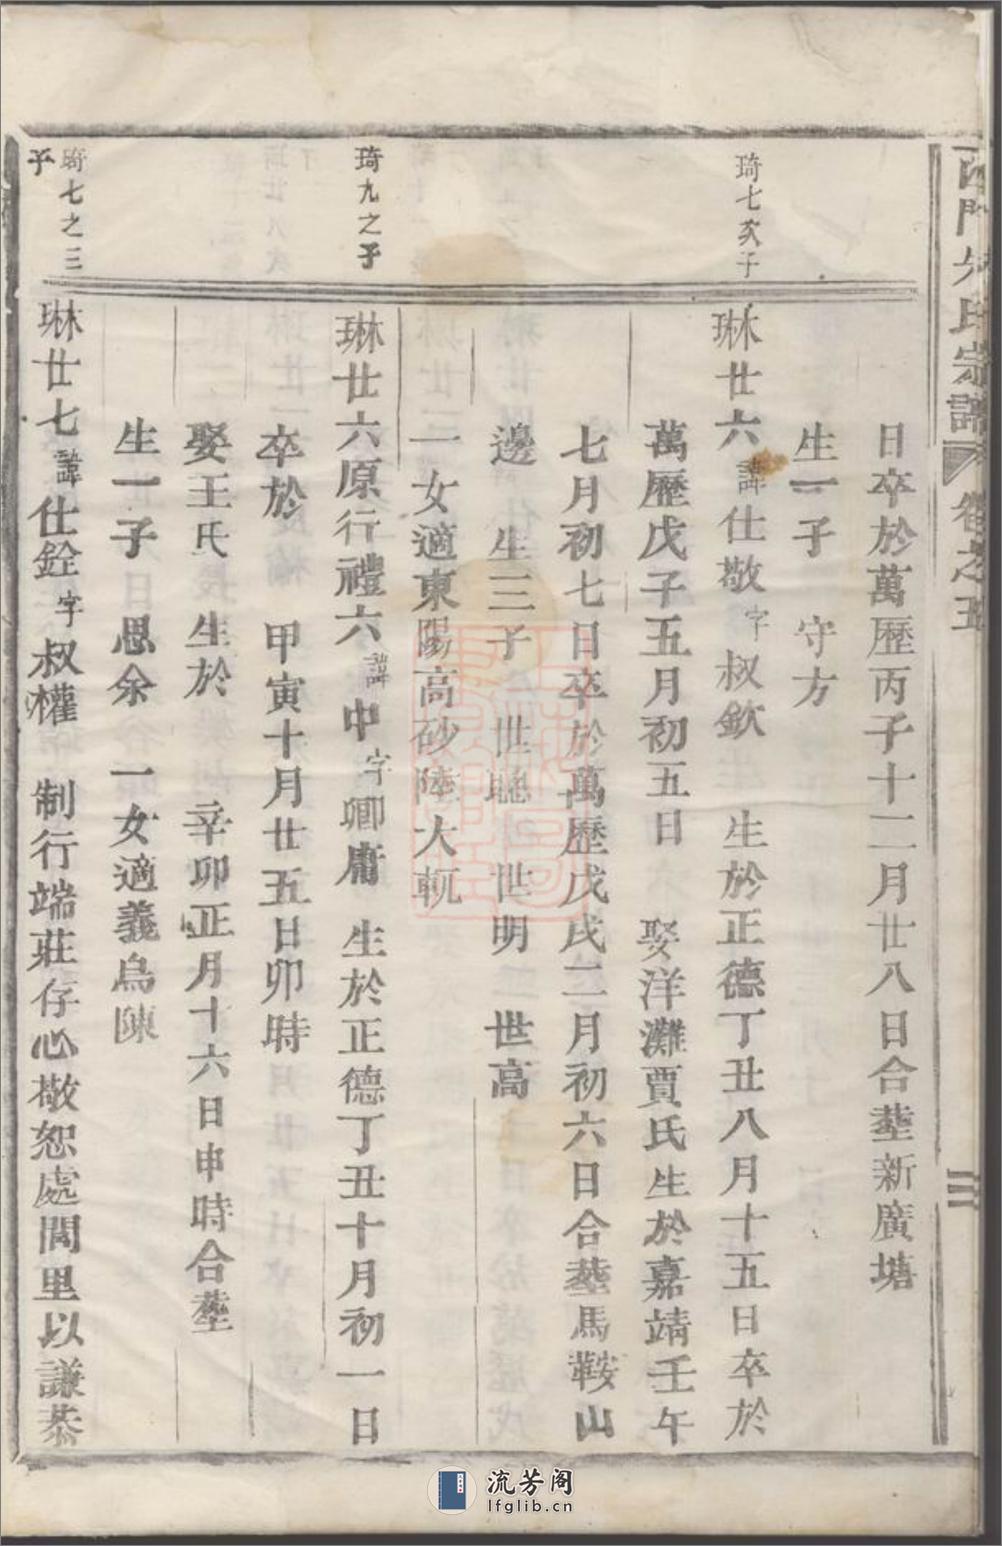 西門朱氏宗譜 卷之五
三
日卒於萬歷丙子十二月廿八日合塟新廣塘
生一子 守方
琦七次子
琳廿六諱仕敬字叔欽 生於正德丁丑八月十五日卒於
萬歷戊子五月初五日 娶洋灘賈氏生於嘉靖壬午
七月初七日卒於萬歷戊戌二月初六日合塟馬鞍山
邊 生三子 世聰 世明 世高
一女適東陽高砂陸大軏
琦九之子
琳廿六原行禮六諱中字卿庸 生於正德丁丑十月初一日
卒於 甲寅十月廿五日卯時
娶王氏 生於 辛卯正月十六日申時合塟
生一子 思余 一女適義烏陳
琦七之三子
琳廿七諱仕銓字叔權 制行端莊存心敬恕處閭里以謙恭
流芳阁
lfglib.cn